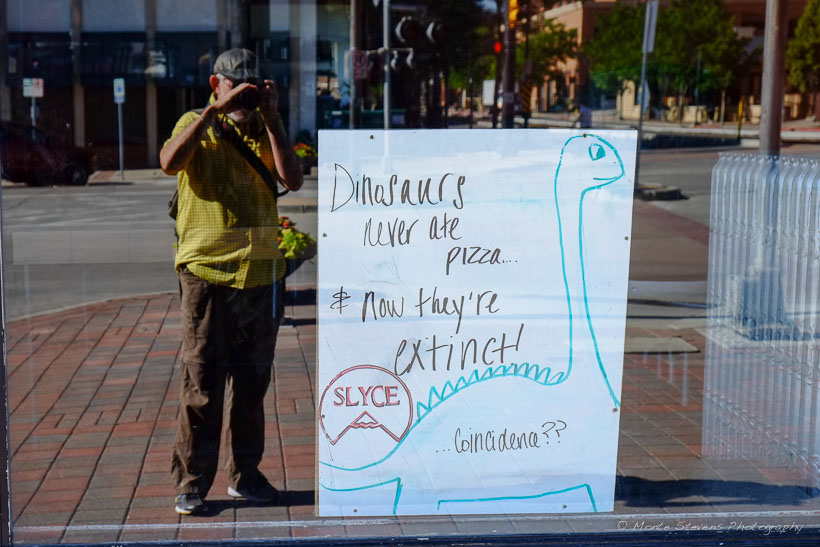 Dinosaurs
never ate
pizza...
& now they're
extinct!
SLYCE
...Coincidence??
© Monte Stevens Photography